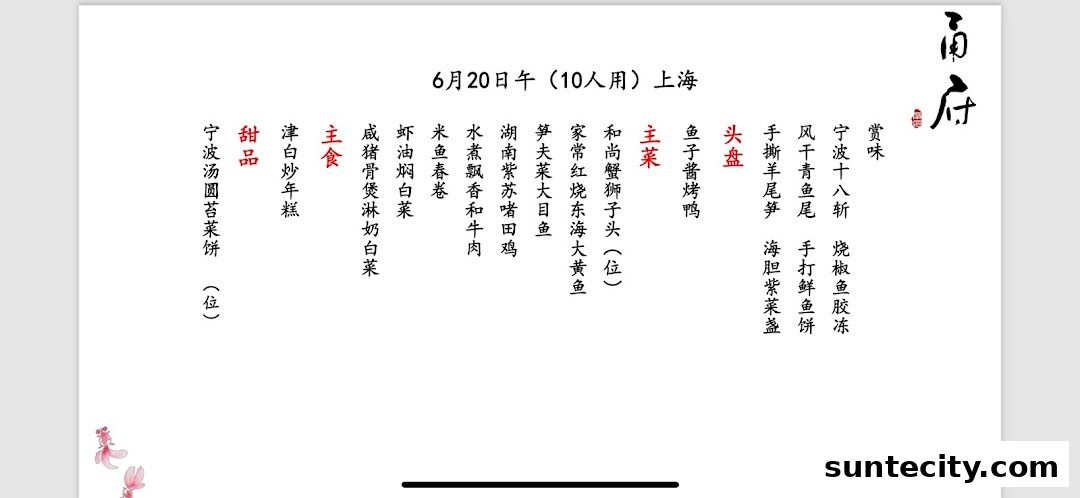 甬府
6月20日午（10人用）上海
赏味
宁波十八斩 烧椒鱼胶冻
风干青鱼尾 手打鲜鱼饼
手撕羊尾笋 海胆紫菜盏
头盘
鱼子酱烤鸭
主菜
和尚蟹狮子头（位）
家常红烧东海大黄鱼
笋夫菜大目鱼
湖南紫苏啫田鸡
水煮飘香和牛肉
米鱼春卷
虾油焖白菜
咸猪骨煲淋奶白菜
主食
津白炒年糕
甜品
宁波汤圆苔菜饼 （位）
suntecity.com